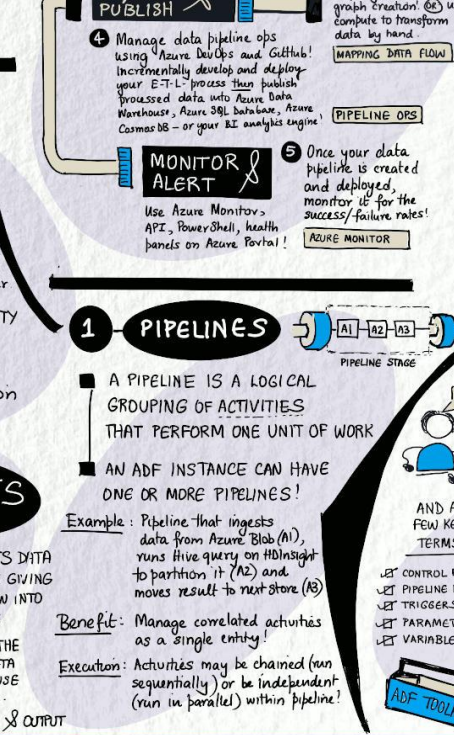 PUBLISH
graph creation. OR u
compute to transform
data by hand.
MAPPING DATA FLOW
4 Manage data pipeline ops
using Azure DevOps and GitHub!
Incrementally develop and deploy
your E-T-L- process then publish
processed data into Azure Data
Warehouse, Azure SQL Database, Azure
Cosmos DB – or your BI analytics engine!
PIPELINE OPS
MONITOR &
ALERT
Use Azure Monitor,
API, PowerShell, health
panels on Azure Portal!
5 Once your data
pipeline is created
and deployed,
monitor it for the
success/failure rates!
AZURE MONITOR
1 PIPELINES
A1 A2 A3
PIPELINE STAGE
A PIPELINE IS A LOGICAL
GROUPING OF ACTIVITIES
THAT PERFORM ONE UNIT OF WORK
AN ADF INSTANCE CAN HAVE
ONE OR MORE PIPELINES!
Example: Pipeline that ingests
data from Azure Blob (A1),
runs Hive query on HDInsight
to partition it (A2) and
moves result to next store (A3)
Benefit: Manage correlated activities
as a single entity!
Execution: Activities may be chained (run
sequentially) or be independent
(run in parallel) within pipeline!
r
TY
on
S
S DATA
GIVING
W INTO
THE
TA
USE
& OUTPUT
AND A
FEW KE
TERMS
CONTROL F
PIPELINE
TRIGGERS
PARAMET
VARIABLE
ADF TOOL